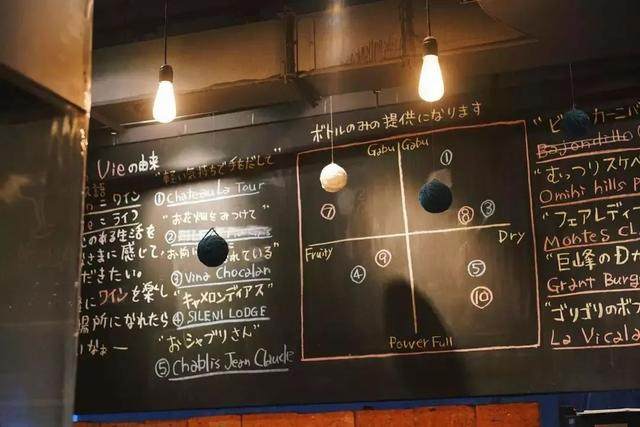 Vieの由来
ワイン
ライフ
のある生活を
さまに感じて,
だきたい。
にワインを楽し
場所になれたら
いなぁー
ボトルのみの提供になります
"軽い気持ちで手をだして"
①Chateau La Tour
"お花畑をみつけて"
②
③Vina Chocalan
"キャメロンディアス"
④SILENI LODGE
"おシャブリさん"
⑤Chablis Jean Claude
Gabu Gabu
①
⑦
⑧
③
Fruity
Dry
④
⑨
⑤
⑩
Power Full
"ビ カーニバ
"むっつりスケベ
Omihi hills P
"フェアレディー
Mohtes CL
"巨峰のDカ
Grant Burg
"ゴリゴリのボデ
La Vicala